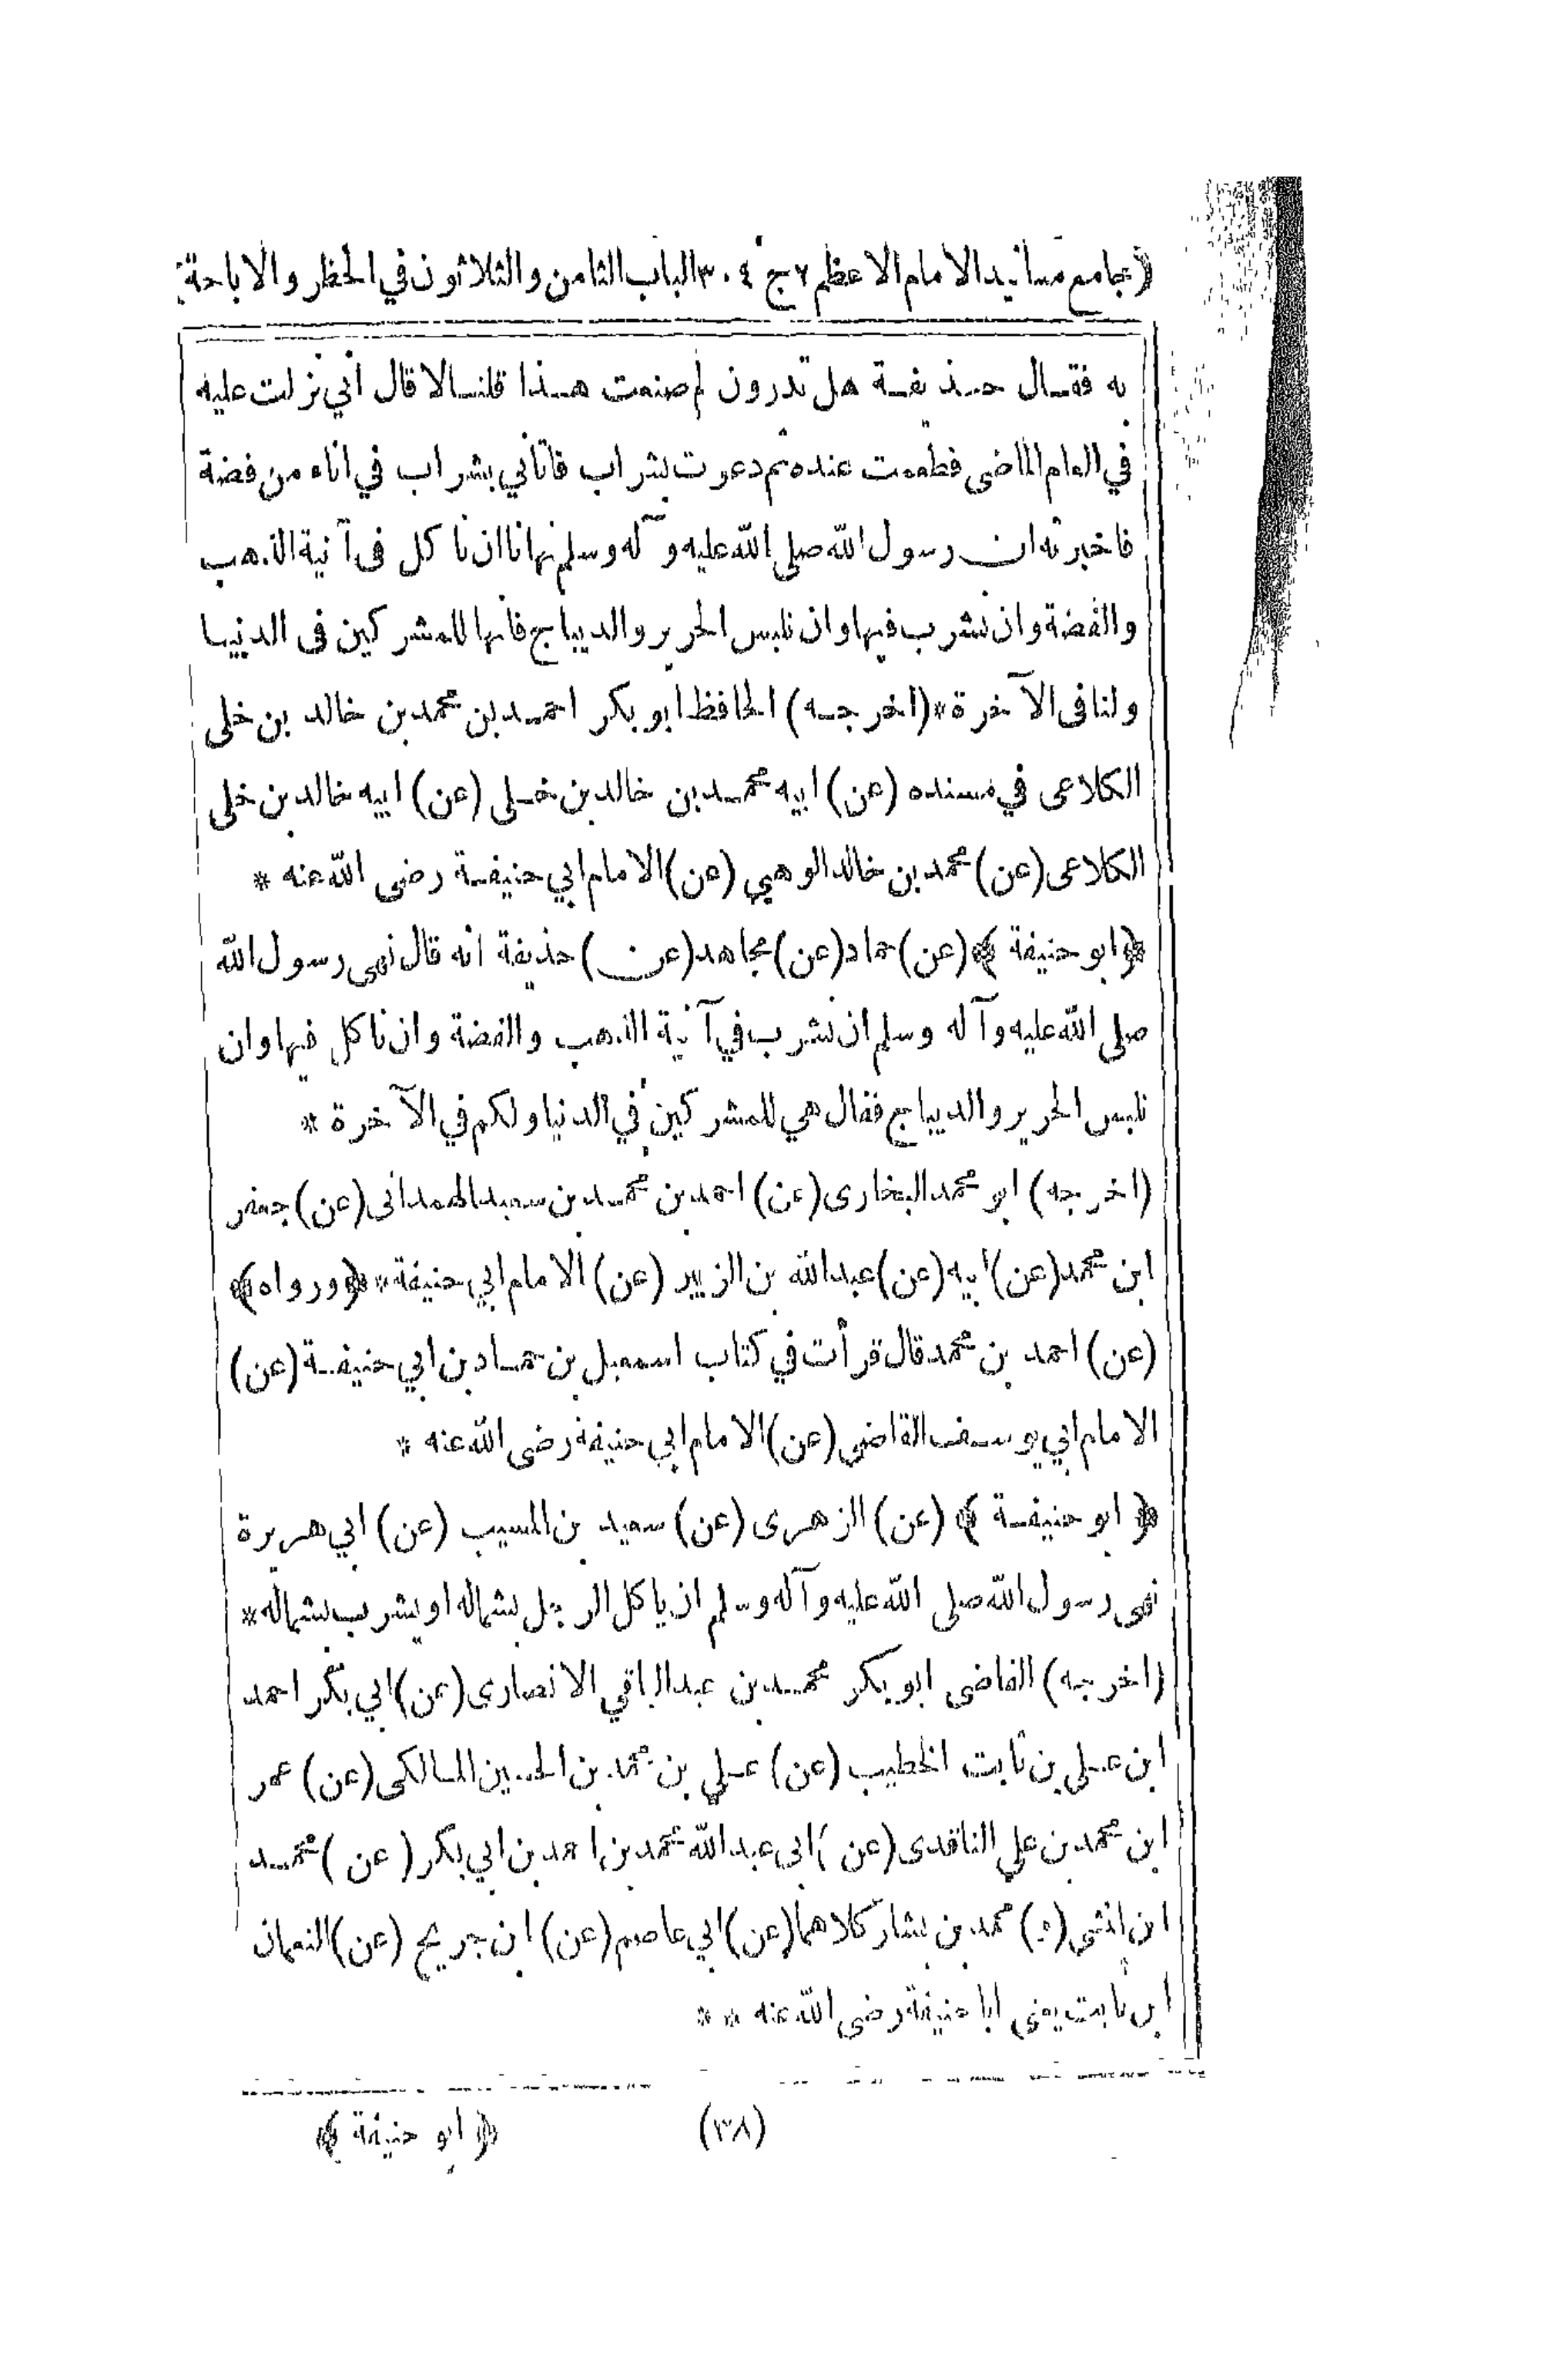 ﴿جامع مسانيد الامام الاعظم ٢ج ٣٠٤ الباب الثامن والثلاثون في الحظر والاباحة
به فقال حذيفة هل تدرون لم صنعت هذا قلنا لا قال اني نزلت عليه
في العام الماضى فطعمت عنده ثم دعوت بشراب فاتاني بشراب في اناء من فضة
فاخبرته ان رسول الله صلى الله عليه وآله وسلم نهانا ان ناكل فى آنية الذهب
والفضة وان نشرب فيها وان نلبس الحرير والديباج فانها للمشركين فى الدنيا
ولنا فى الآخرة * (اخرجه) الحافظ ابو بكر احمد بن محمد بن خالد بن خلى
الكلاعى في مسنده (عن) ابيه محمد بن خالد بن خلى (عن) ابيه خالد بن خلى
الكلاعى (عن) محمد بن خالد الوهبي (عن) الامام ابي حنيفة رضى الله عنه *
﴿ابو حنيفة﴾ (عن) حماد (عن) مجاهد (عن) حذيفة انه قال نهى رسول الله
صلى الله عليه وآله وسلم ان نشرب في آنية الذهب والفضة وان ناكل فيها وان
نلبس الحرير والديباج فقال هي للمشركين في الدنيا ولكم في الآخرة *
(اخرجه) ابو محمد البخارى (عن) احمد بن محمد بن سعيد الهمدانى (عن) جعفر
ابن محمد (عن) ابيه (عن) عبد الله بن الزبير (عن) الامام ابي حنيفة * ﴿ورواه﴾
(عن) احمد بن محمد قال قرأت في كتاب اسمعيل بن حماد بن ابي حنيفة (عن)
الامام ابي يوسف القاضي (عن) الامام ابي حنيفة رضى الله عنه *
﴿ابو حنيفة﴾ (عن) الزهرى (عن) سعيد بن المسيب (عن) ابي هريرة
نهى رسول الله صلى الله عليه وآله وسلم ان ياكل الرجل بشماله او يشرب بشماله *
(اخرجه) القاضى ابو بكر محمد بن عبد الباقي الانصارى (عن) ابي بكر احمد
ابن علي بن ثابت الخطيب (عن) علي بن محمد بن الحسين المالكى (عن) عمر
ابن محمد بن علي الناقدى (عن) ابى عبد الله محمد بن احمد بن ابي بكر (عن) محمد
ابن المثنى (و) محمد بن بشار كلاهما (عن) ابي عاصم (عن) ابن جريج (عن) النعمان
ابن ثابت يعنى ابا حنيفة رضى الله عنه * *
(٣٨) ﴿ابو حنيفة﴾